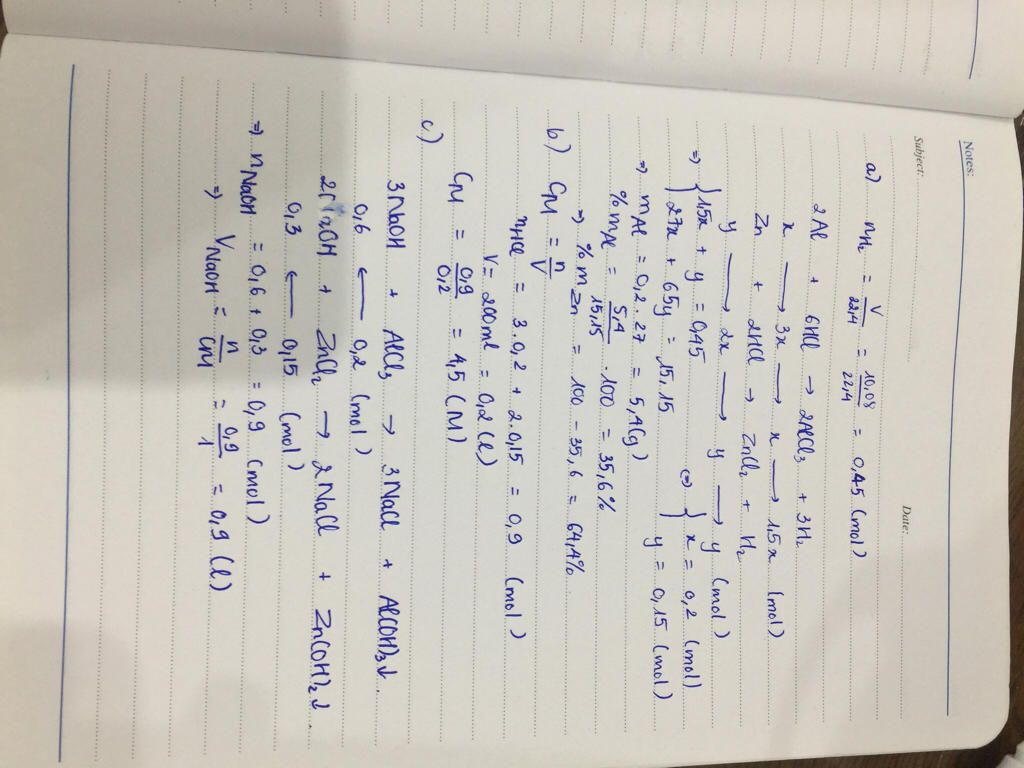 Notes:
Subject: Date:
a) nH₂ = V/22,4 = 10,08/22,4 = 0,45 (mol)
2Al + 6HCl → 2AlCl₃ + 3H₂
x → 3x → x → 1,5x (mol)
Zn + 2HCl → ZnCl₂ + H₂
y → 2x → y → y (mol)
⇒ { 1,5x + y = 0,45 ⇔ { x = 0,2 (mol)
{ 27x + 65y = 15,15 y = 0,15 (mol)
⇒ mAl = 0,2 . 27 = 5,4(g)
% mAl = 5,4/15,15 . 100 = 35,6%
⇒ % m Zn = 100 - 35,6 = 64,4%
b) CM = n/V
nHCl = 3.0,2 + 2.0,15 = 0,9 (mol)
V = 200ml = 0,2 (l)
CM = 0,9/0,2 = 4,5 (M)
c)
3NaOH + AlCl₃ → 3NaCl + Al(OH)₃↓
0,6 ← 0,2 (mol)
2NaOH + ZnCl₂ → 2NaCl + Zn(OH)₂↓
0,3 ← 0,15 (mol)
⇒ nNaOH = 0,6 + 0,3 = 0,9 (mol)
⇒ VNaOH = n/CM = 0,9/1 = 0,9 (l)